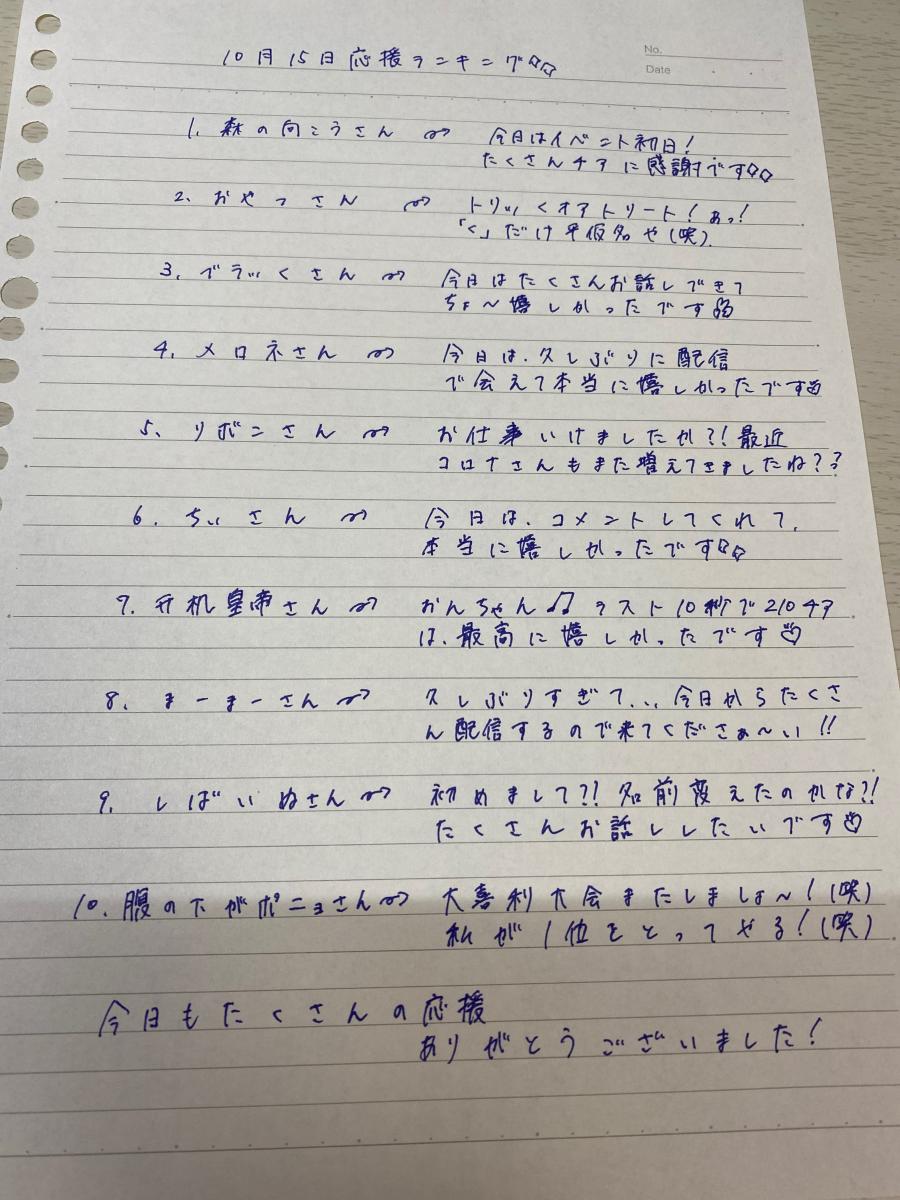 No.
Date
10月15日応援ランキング☆☆
1. 森の向こうさん ⇝ 今日はイベント初日!
たくさんチアに感謝です♡♡
2. おやっさん ⇝ トリッくオアトリート!あっ!
「く」だけ平仮名や(笑).
3. ブラッくさん ⇝ 今日はたくさんお話しできて
ちょ〜嬉しかったです
4. メロネさん ⇝ 今日は、久しぶりに配信
で会えて本当に嬉しかったです♡
5. リボンさん ⇝ お仕事いけましたか?!最近
コロナさんもまた増えてきましたね??
6. ちぃさん ⇝ 今日は、コメントしてくれて、
本当に嬉しかったです♡♡
7. 开机皇帝さん ⇝ おんちゃん♫ ラスト10秒で210チア
は、最高に嬉しかったです♡
8. まーまーさん ⇝ 久しぶりすぎて...今日からたくさ
ん配信するので来てくださぁ〜い!!
9. しばいぬさん ⇝ 初めまして?!名前変えたのかな?!
たくさんお話ししたいです♡
10. 腹の下がポニョさん ⇝ 大喜利大会またしましょ〜!(笑)
私が1位をとってやる!(笑)
今日もたくさんの応援
ありがとうございました!